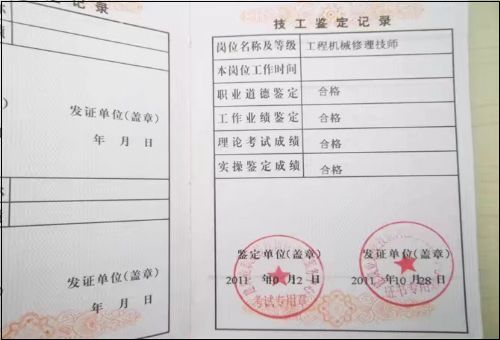 录
发证单位(盖章)
年 月 日
发证单位(盖章)
年 月 日
技工鉴定记录
岗位名称及等级 工程机械修理技师
本岗位工作时间
职业道德鉴定 合格
工作业绩鉴定 合格
理论考试成绩 合格
实操鉴定成绩 合格
鉴定单位(盖章) 发证单位(盖章)
2011 年10 月 2 日 2011 年 10 月 28 日
考试专用章 证书专用章